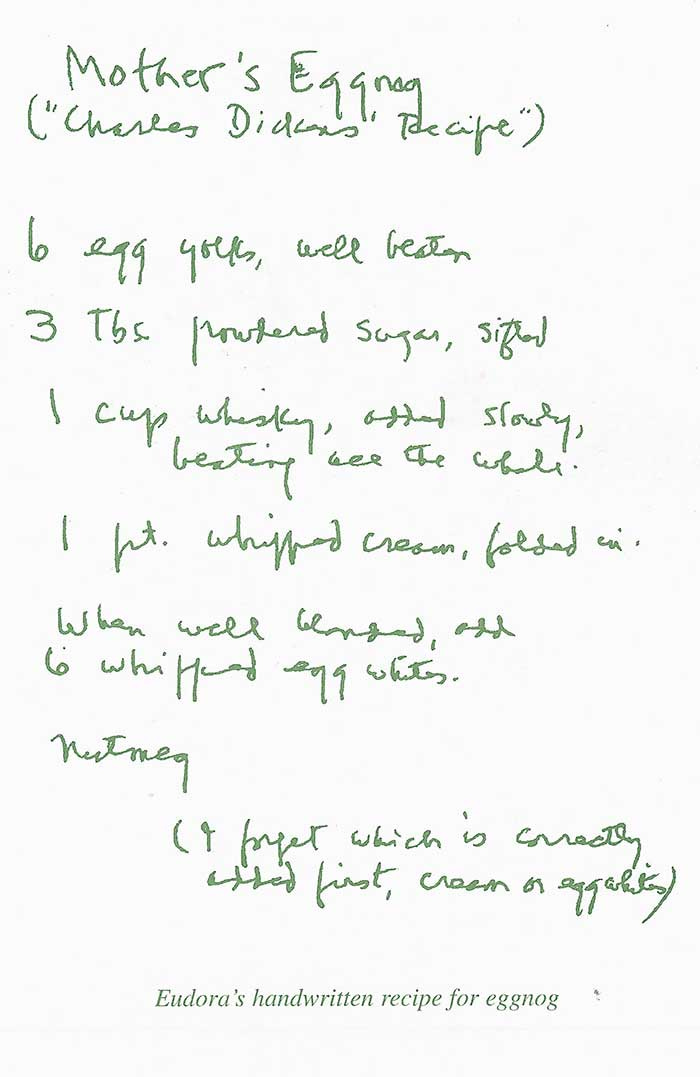 Mother's Eggnog
("Charles Dickens' Recipe")
6 egg yolks, well beaten
3 Tbs powdered sugar, sifted
1 cup whisky, added slowly,
beating all the while.
1 pt. whipped cream, folded in.
When well blended, add
6 whipped egg whites.
Nutmeg
(I forget which is correctly
added first, cream or eggwhites)
Eudora's handwritten recipe for eggnog